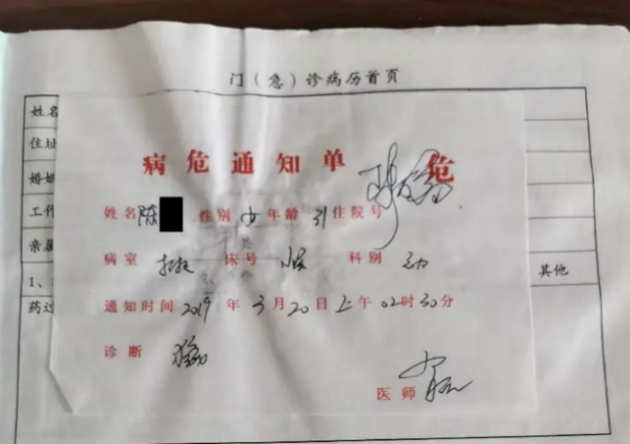 门（急）诊病历首页
姓名
住址
婚姻
工作
亲属
1、 其他
药过
病危通知单 危
姓名 陈 性别 女 年龄 31 住院号
病室 抢救 床号 临 科别 急
通知时间 2019 年 3 月 20 日 上午 02 时 30 分
诊断
医师